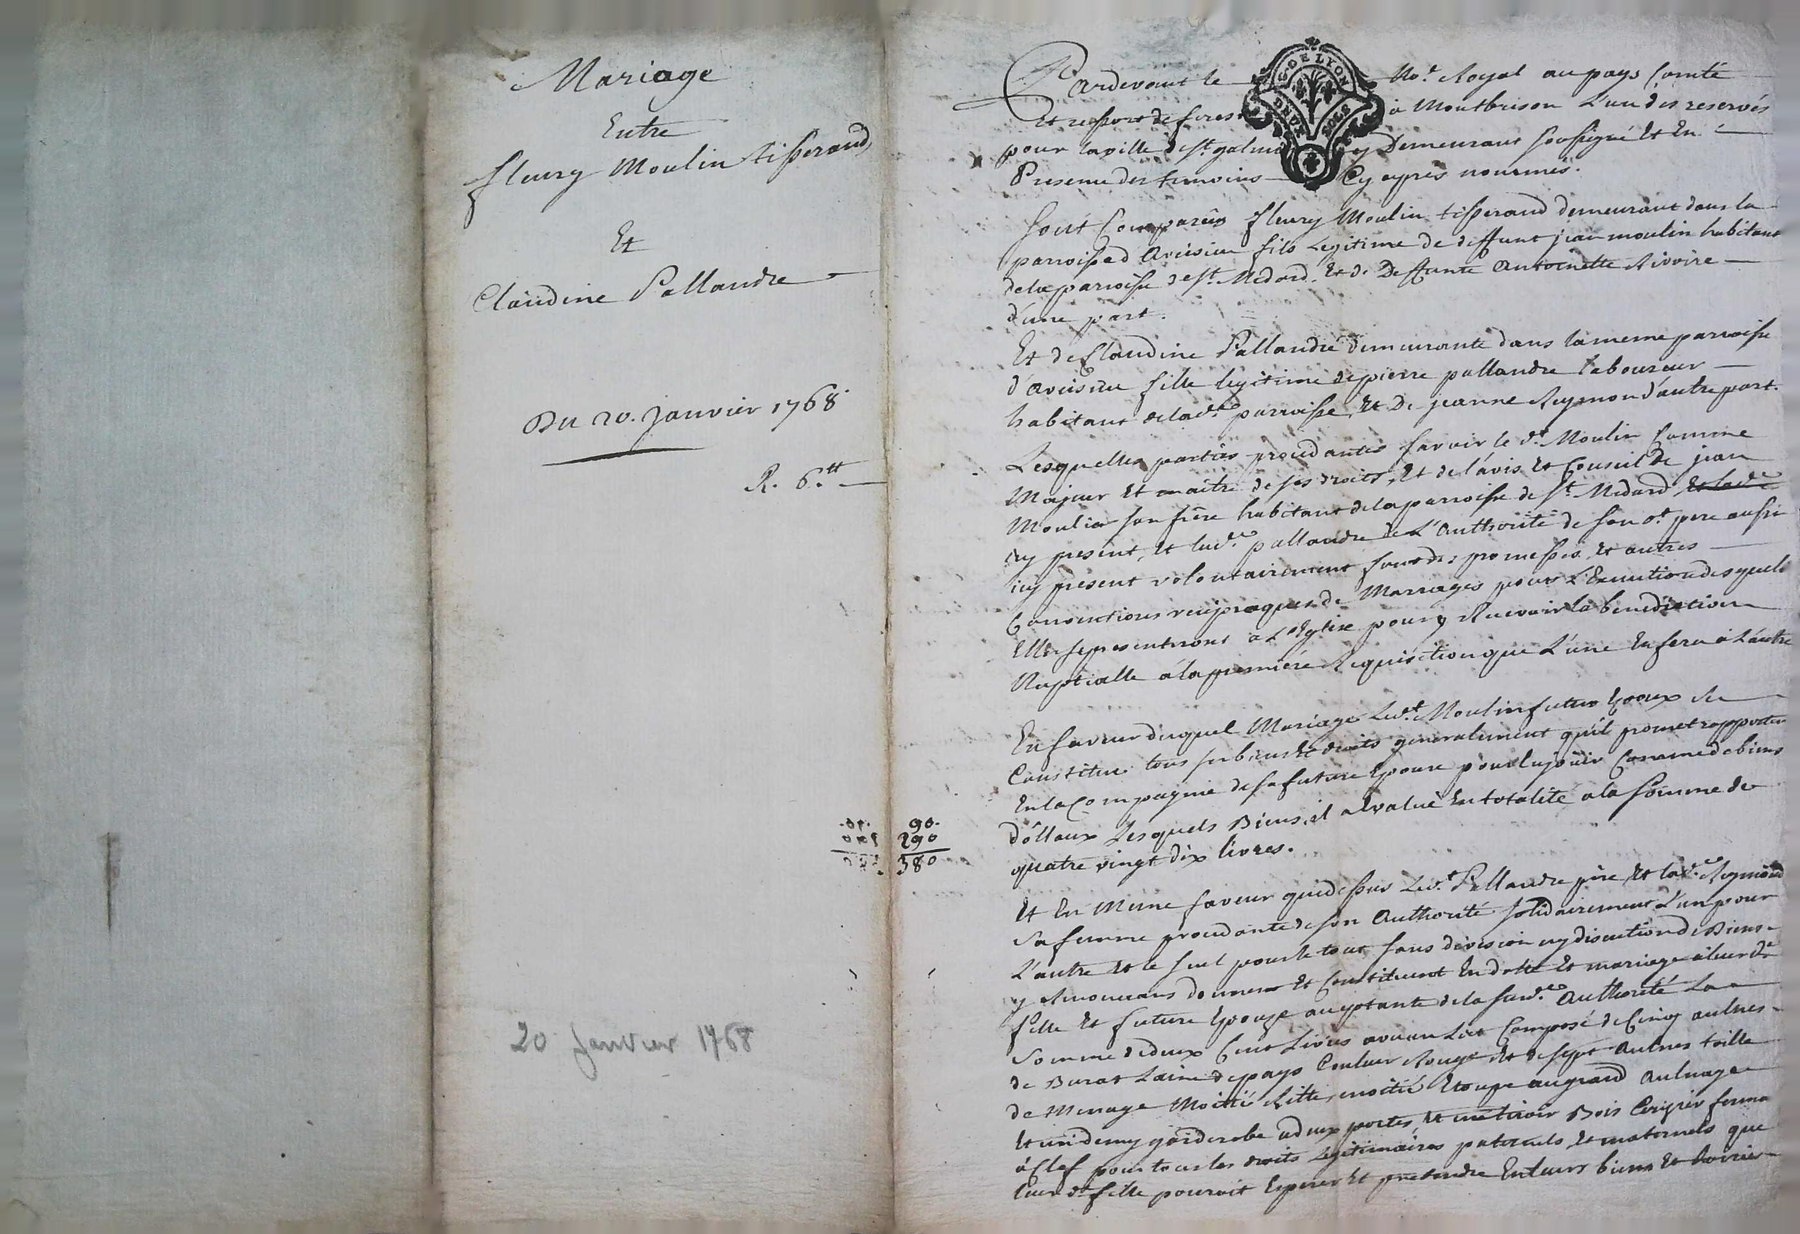 Mariage
Entre
fleury Moulin tisserand
Et
Claudine Pallandre
Du 20. Janvier 1768
R. 6.tt
20 Janvier 1768
90.
290
380
G. DE LYON
DEUX SOLS
Pardevant le No.re Royal au pays Comté
Et ressort de forest à Montbrison L'un des reservés
pour la ville de St. galmier y Demeurant soussigné Et En
Presence des temoins Cy apres nommés.
Sont Comparûs fleury Moulin tisserand demeurant dans la
parroisse d'Aveisieu fils Legitime de deffunt jean moulin habitant
de la parroisse de St. Medard, Et de Deffunte Antoinette Rivoire
d'une part.
Et de Claudine Pallandre demeurante dans la meme parroisse
d'Aveisieu fille legitime de pierre pallandre laboureur
habitant de lad.e parroisse, Et De jeanne Reymond d'autre part.
Lesquelles parties procedantes savoir le d.t Moulin Comme
Majeur Et maitre de ses droits, Et de l'avis Et Conseil de jean
Moulin son frère habitant de la parroisse de St. Medard Et lad.e
cy present, et lad.e pallandre de L'Authorité de son d.t pere aussi
icy present volontairement font des promesses, Et autres
Conventions reciproques de Marriages pour L'Execution desquels
Elles se presenteront à L'Eglise pour y Recevoir la benediction
Nuptialle à la premiére Requisition que L'une En fera à L'autre
En faveur duquel Mariage Led.t Moulin futur Epoux se
Constitue tous ses biens Et droits generalement qu'il promet apporter
En la Compagnie de sa future Epouse pour En jouir Comme de biens
dôtaux Lesquels Biens, il a Evalué En totalité a la somme de
quatre vingt dix livres.
Et En Meme faveur que dessus Led.t Pallandre père Et lad.e Reymond
sa femme procedante de son Authorité solidairement L'un pour
L'autre Et le seul pour le tout sans division ny discution de Biens
y Renonceans donnent Et Constituent En dotte Et mariage à leur d.e
fille Et future Epouze acceptante de la susd.e Authorité La
somme de deux Cent Livres avec un Lict Composé de Cinq aulnes
de Burat Laine de pays Couleur Rouge Et de sept Aulnes toille
de Menage Moitié Ritte, moitié Etoupe au grand Aulnage
Et un demy garderobe a deux portes, Et un tiroir Bois Cerisier ferma
à Clef pour tous les droits Legitimaires paternels, et maternels que
leur d.e fille pouroit Esperer Et pretendre En leurs biens Et hoirie